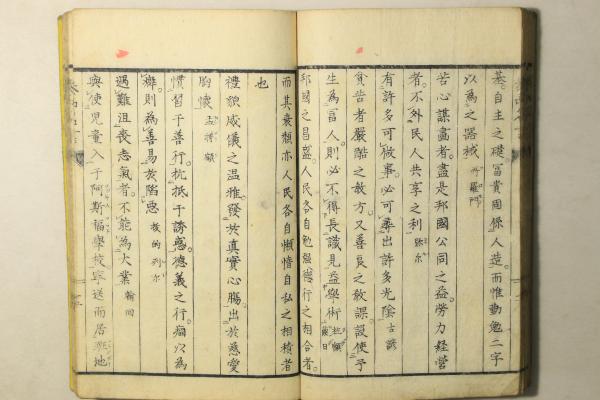 基。自主之礎。冨貴固係人造。而惟勤勉二字
以為之器械
苦心謀畫者。盡是邦國公同之益。勞力經營
者。不外民人共享之利
有許多可做事。必可尋出許多光陰 古諺
貧苦者嚴酷之教方。又善良之教誤。設使予
生為冨人。則必不得長識見益學術
邦國之昌盛。人民各自勉強德行之相合者。
而其衰頹亦人民各自懶惰自私之相積者
也
禮貌威儀之温雅。發於真實心腸。出於慈愛
胸懷
慣習于善行。抗抵于誘惑。德義之行。
難。則為善易於陷惡
遇難沮喪志氣者。不能為大業
與使兒童入于阿斯福學校。寧送而居